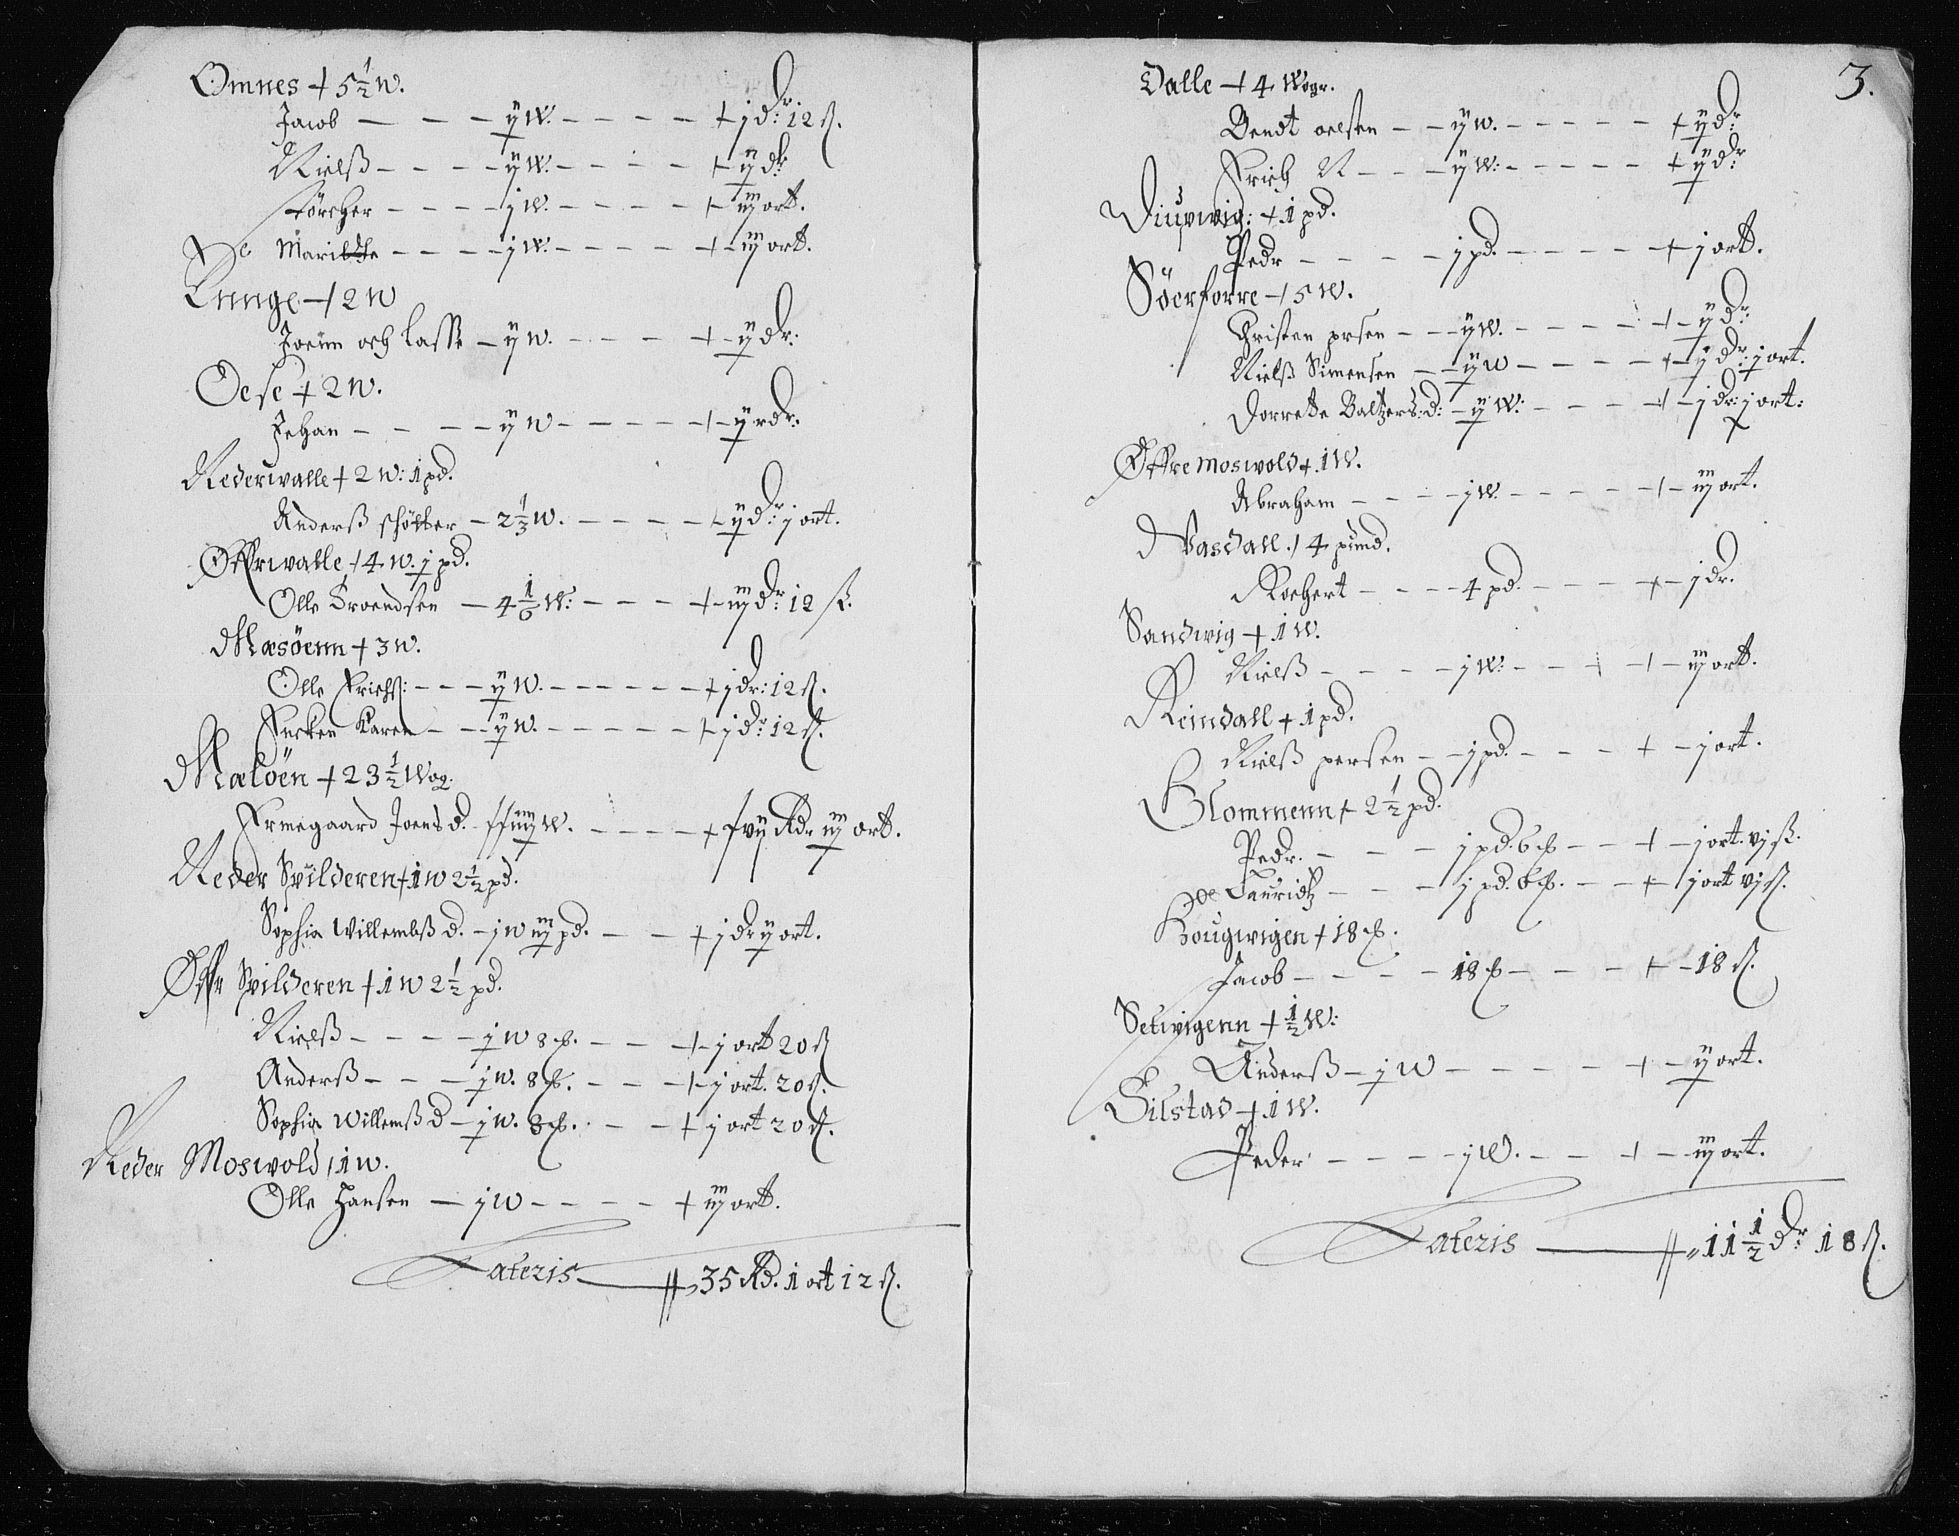 Omnes + 5 1/2 W.
Jacob — — — ij W. — — — — + j dr: 12 ß.
Nielß — — — — ij W. — — — + ij dr
— — — — j W. — — — — + iij ort.
De Marildtz — — — — j W. — — — — + iij ort.
Lunge + 2 W
Joenn och Lasse — ij W. — — — + ij dr:
Oese + 2 W.
Johan — — — — ij W — — — — + ij rdr:
Nederwalle + 2 W: 1 pd.
Anderß — 2 1/3 W. — — — — + ij dr: j ort.
Øffrwalle + 4 W. j pd.
Olle Troendsen — 4 1/6 W: — — — + iij dr 12 ß.
Mæsøenn + 3 W.
Olle Erichß: — — — ij W. — — — — — + j dr: 12 ß.
Encken Karen — — ij W. — — — — — + j dr 12 ß.
Maløen + 23 1/2 Wog.
Ermegaard Joens d. W. — — — — + xvij Rdr iij ort.
Neder Spilderen + 1 W 2 1/2 pd.
Sophia Willembß d. — j W iij pd. — — + j dr ij ort.
Øffr Spilderen + 1 W 2 1/2 pd.
Nielß — — — — j W 8 — — — + j ort 20 ß
Anderß — — — j W. 8 — — — + j ort. 20 ß.
Sophia Willemß d — j W. 8 — — + j ort 20 ß.
Neder Moswold + 1 W.
Olle Hansen — j W — — — — + iij ort.
Lateris — 35 Rd. 1 ort 12 ß.
3.
Dalle + 4 Wogr.
Bendt oelsen — — ij W. — — — — — + ij dr
Erich N — — — ij W: — — — — + ij dr
Diupwig: + 1 pd.
Pedr — — — — j pd. — — — — + j ort.
Söerforre + 5 W.
Christen prsen — — ij W. — — — — + ij dr
Nielß Simensen — — ij W — — — — + j dr: j ort.
Dorrete Baltzers: d: — ij W: — — — — + j dr: j ort:
Øffre Moswold + 1 W.
Abraham — — — — j W. — — — — — + iij ort.
Wasdall + 4 pund.
Rochert — — — — 4 pd. — — — + j dr.
Sandwig + 1 W.
Nielß — — — — j W: — — — + iij ort.
Reindall + 1 pd.
Nielß persen — — j pd. — — — + j ort.
Blommenn + 2 1/2 pd.
Pedr. — — — j pd. 6 — — + j ort. vj ß.
De Lauridtz — — — j pd. 6 — — + j ort vj ß.
Hougwigen + 18
Jacob — — — — 18 — — — + 18 ß.
Selwigenn + 1/2 W:
Anderß — j W — — — — — + ij ort.
Silstad + 1 W.
Peder — — — — j W. — — + iij ort.
Lateris — 11 1/2 Dr 18 ß.